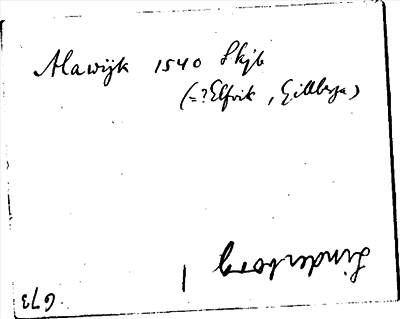 Alawijk 1540 Skjb
(=? Elfvik, Gillberga)
Linderborg
673